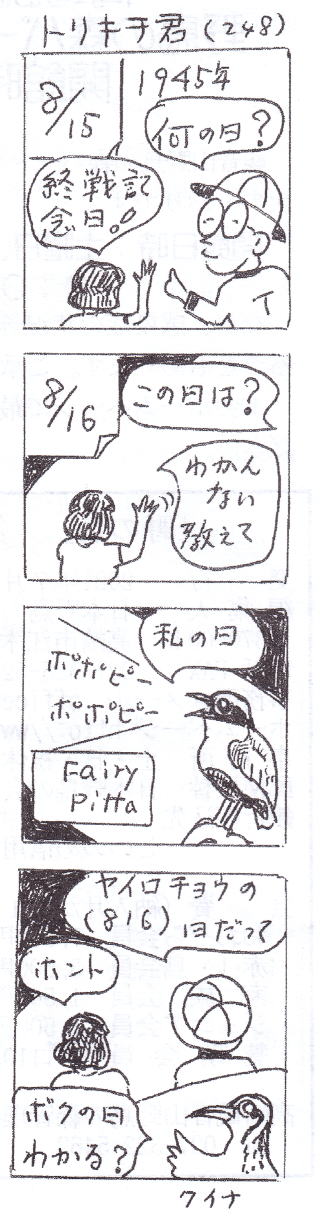 トリキチ君(248)
8/15
1945年
何の日?
終戦記
念日!!
8/16
この日は?
わかん
ない
教えて
私の日
ポポピー
ポポピー
Fairy
Pitta
ヤイロチョウの
(816)日だって
ホント
ボクの日
わかる?
クイナ